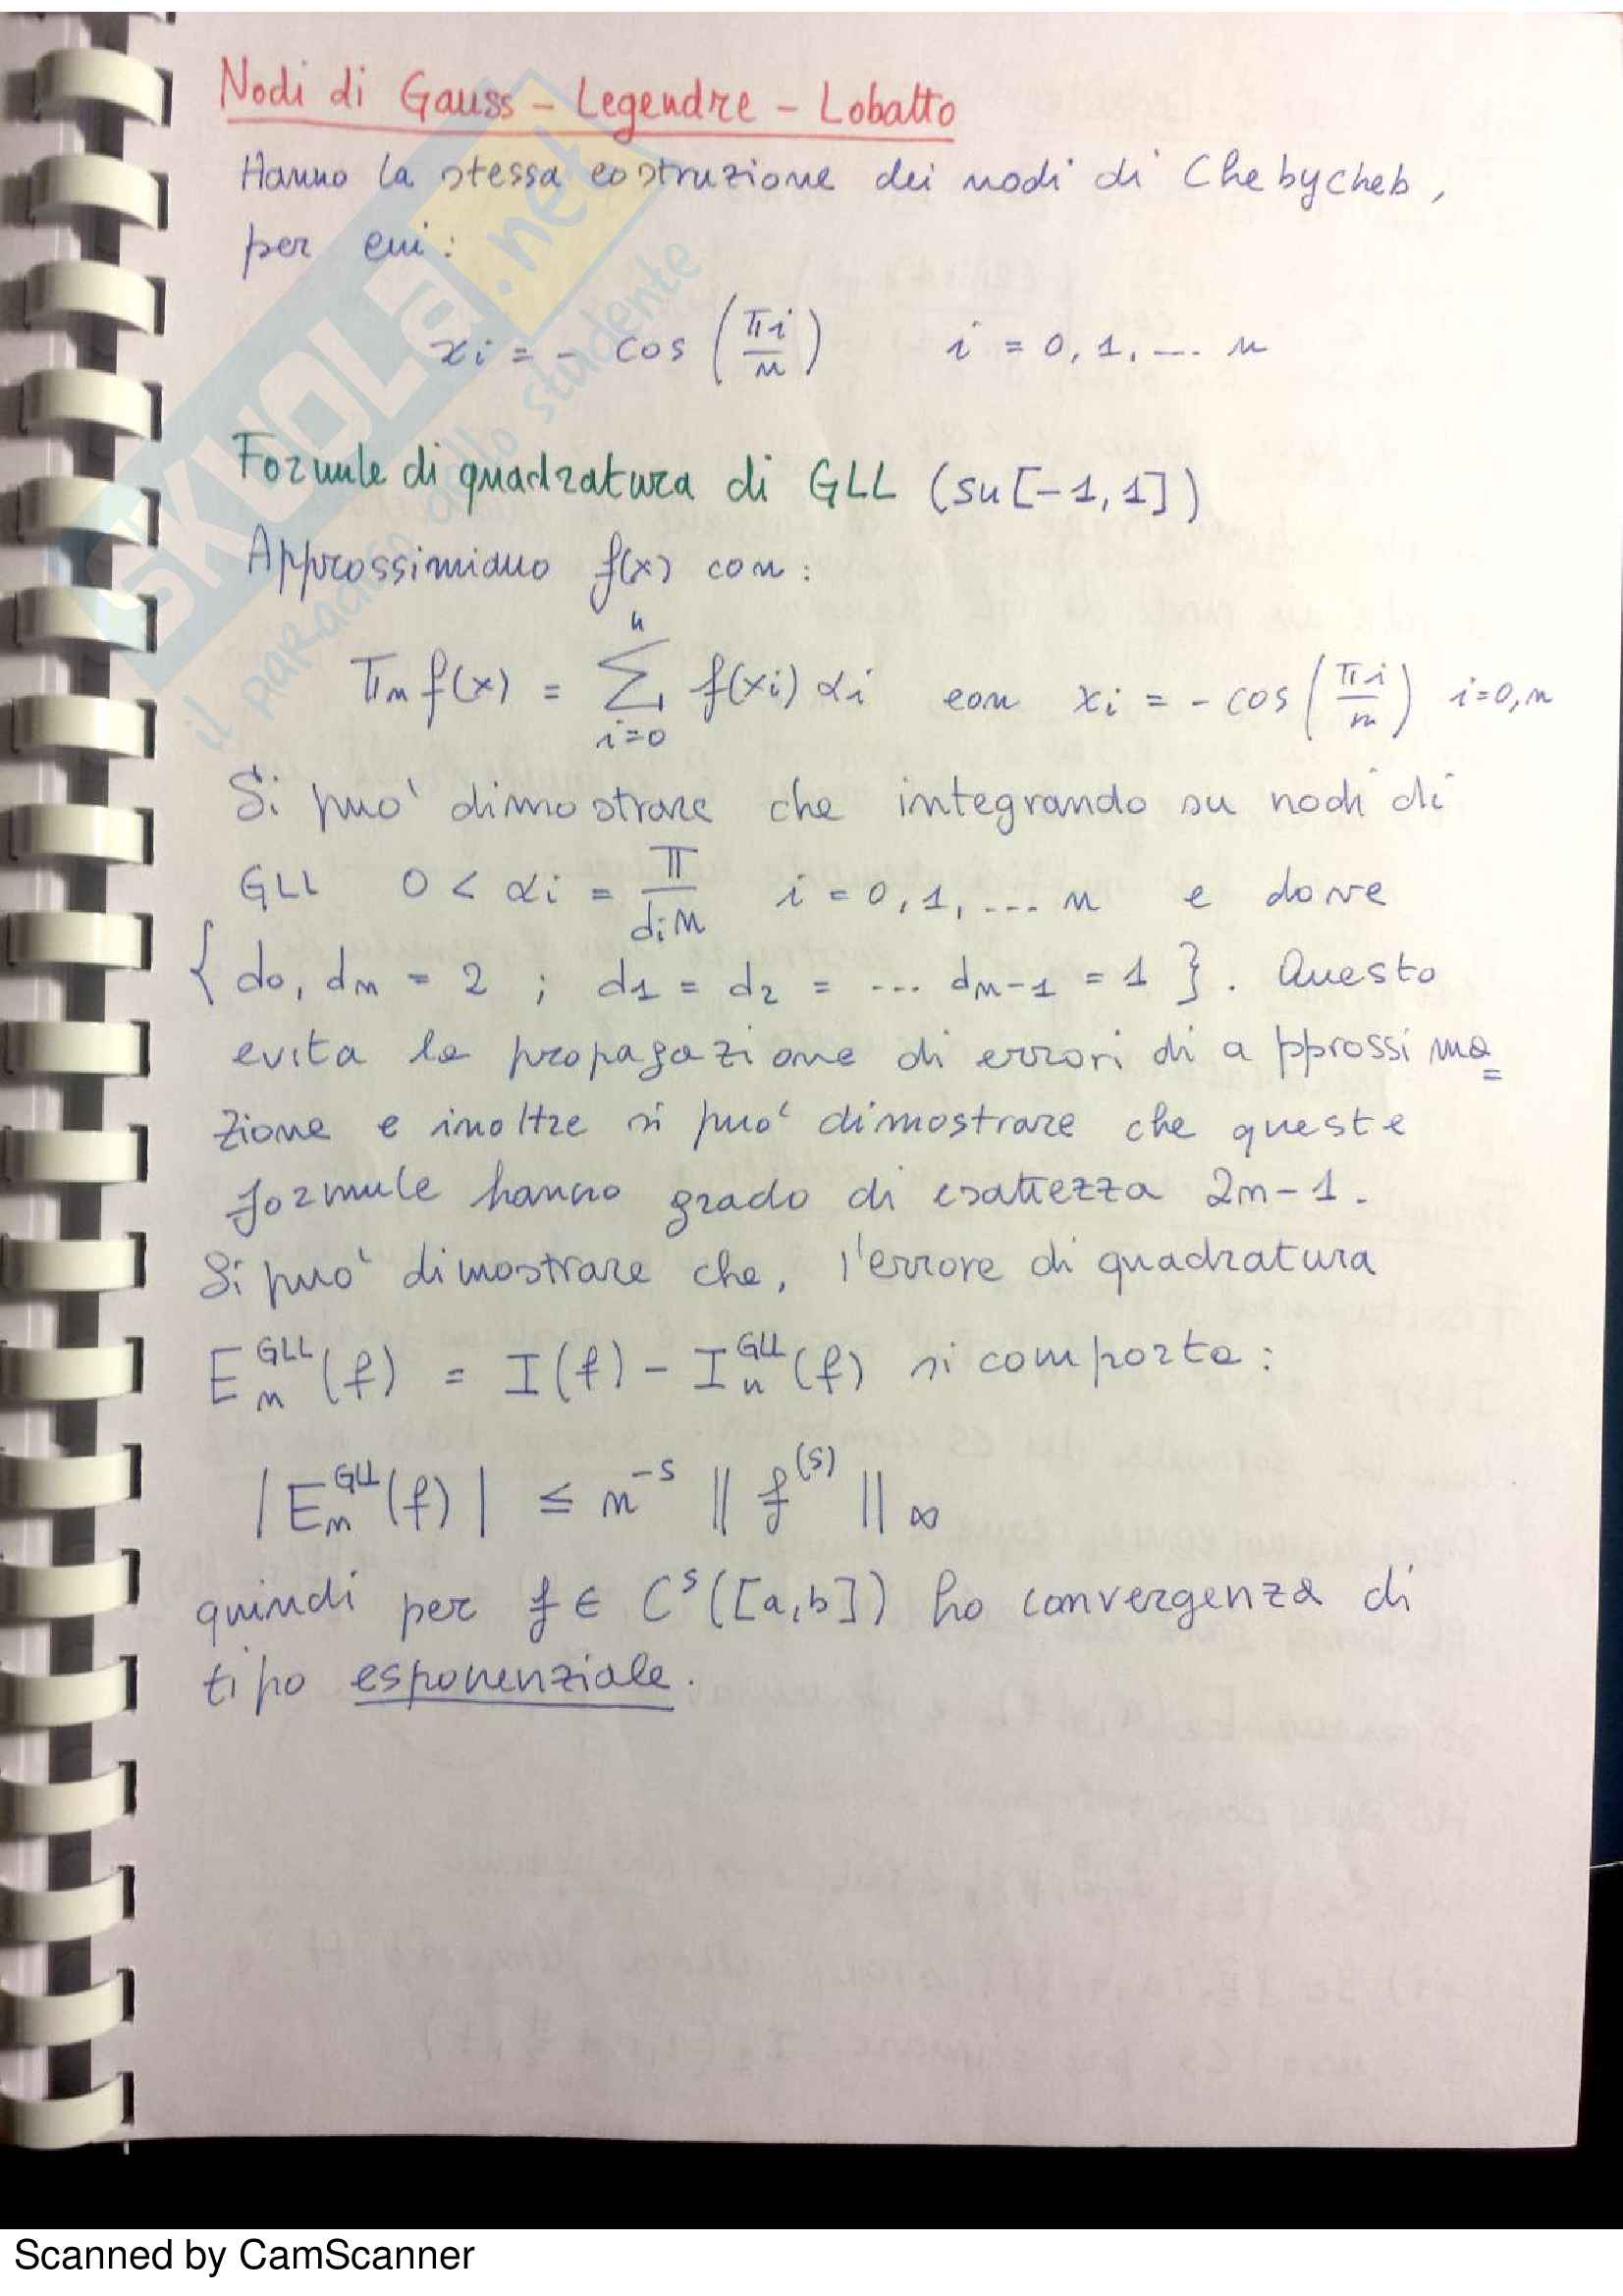 Nodi di Gauss - Legendre - Lobatto
Hanno la stessa costruzione dei nodi di Chebycheb,
per cui:
xi = - cos (πi/n) i = 0, 1, ... n
Formule di quadratura di GLL (su [-1, 1])
Approssimiamo f(x) con:
Πn f(x) = Σ_{i=0}^{n} f(xi) αi con xi = - cos (πi/n) i=0,n
Si puo' dimostrare che integrando su nodi di
GLL 0 < αi = π/(di n) i = 0, 1, ... n e dove
{ d0, dn = 2 ; d1 = d2 = ... dn-1 = 1 }. Questo
evita la propagazione di errori di approssima=
zione e inoltre si puo' dimostrare che queste
formule hanno grado di esattezza 2n-1.
Si puo' dimostrare che, l'errore di quadratura
E_n^{GLL}(f) = I(f) - I_n^{GLL}(f) si comporta:
|E_n^{GLL}(f)| ≤ n^{-s} || f^{(s)} ||∞
quindi per f ∈ C^s([a,b]) ho convergenza di
tipo esponenziale.
SKUOLA.net
il paradiso dello studente
Scanned by CamScanner